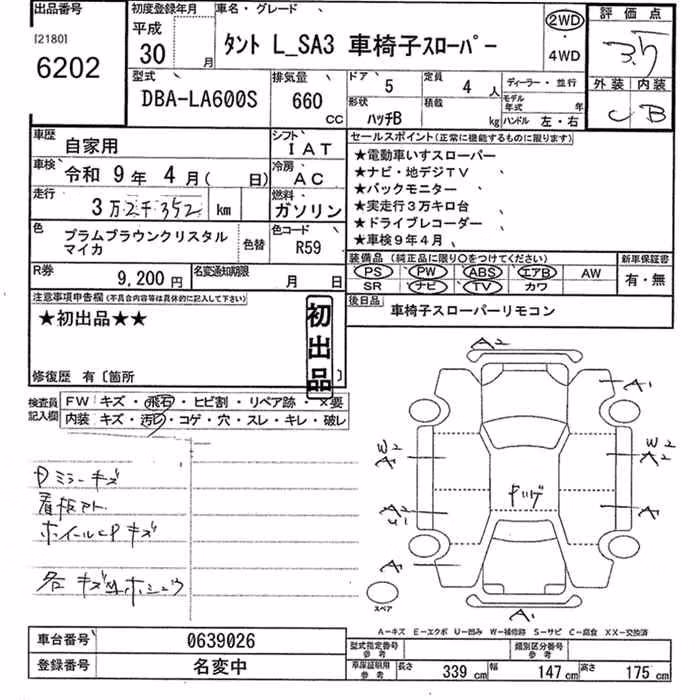 出品番号
[2180]
6202
初度登録年月
平成
30 月
車名・グレード
タント L_SA3 車椅子スローパー
2WD
・
4WD
評価点
3.5
外装 内装
C B
型式
DBA-LA600S
排気量
660
cc
ドア 5
定員 4 人
形状 ハッチB
積載 kg
ディーラー・並行
モデル年式 年
ハンドル 左・右
車歴 自家用
シフト IAT
車検 令和 9 年 4 月( 日)
冷房 AC
走行 3万2千352 km
燃料 ガソリン
色 プラムブラウンクリスタル
マイカ
色替
色コード R59
R券 9,200 円
名変通知期限 月 日
セールスポイント(正常に機能するものに限ります)
★電動車いすスローパー
★ナビ・地デジTV
★バックモニター
★実走行3万キロ台
★ドライブレコーダー
★車検9年4月
装備品(純正品に限り○をつけてください)
PS PW ABS エアB AW
SR ナビ TV カワ
新車保証書
有・無
後日品 車椅子スローパーリモコン
注意事項申告欄(不具合内容等は具体的に記入して下さい)
★初出品★★
初出品
修復歴 有[箇所 ]
検査員
記入欄
FW キズ・飛石・ヒビ割・リペア跡・×要
内装 キズ・汚レ・コゲ・穴・スレ・キレ・破レ
Dミラーキズ
看板アト
ホイールCPキズ
各キズ
A2
A1
W2
A2
W2
A2
A
A1
A1
スペア
A−キズ E−エクボ U−凹み W−補修跡 S−サビ C−腐食 XX−交換済
車台番号 0639026
登録番号 名変中
型式指定番号
参考
類別区分番号
参考
車庫証明用
参考
長さ 339 cm 幅 147 cm 高さ 175 cm